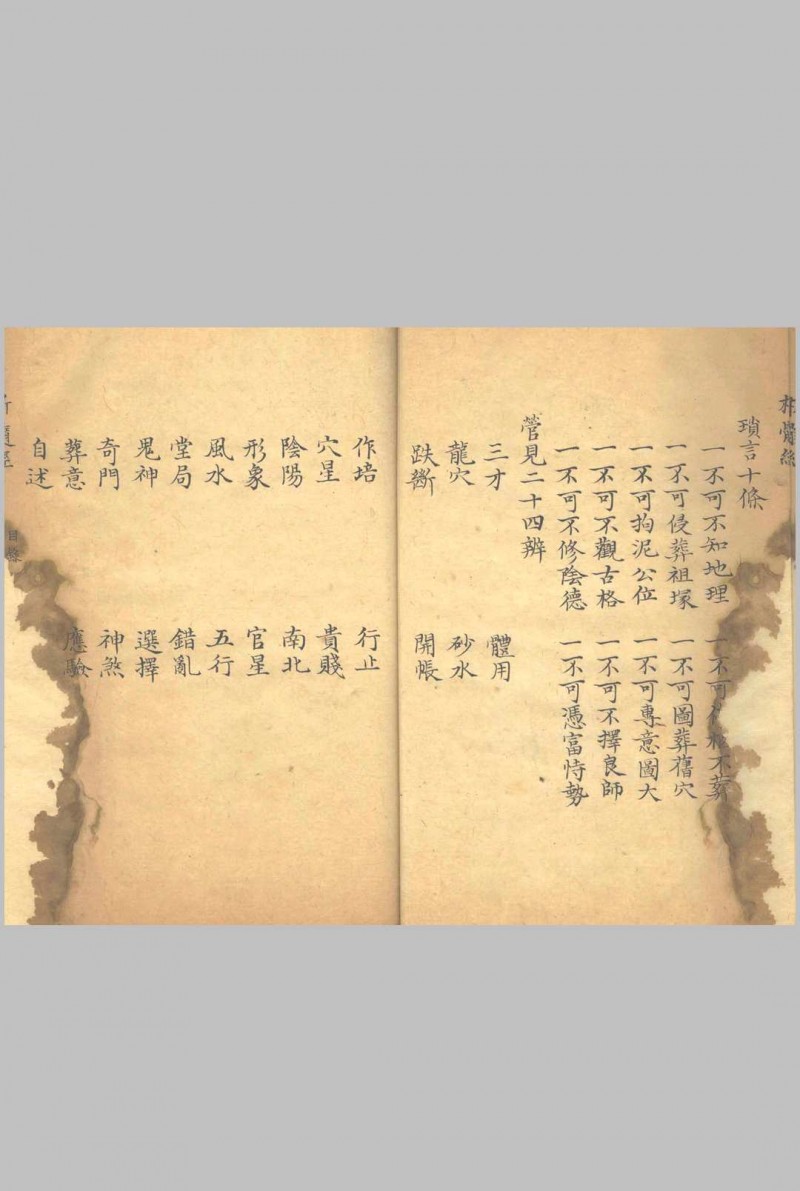 瑣言十條
一不可不知地理　一不可不葬
一不可侵葬祖塚　一不可圖葬舊穴
一不可拘泥公位　一不可專意圖大
一不可不觀古格　一不可不擇良師
一不可不修陰德　一不可憑富恃勢
管見二十四辨
三才　體用
龍穴　砂水
跌斷　開帳
作培　行止
穴星　貴賤
陰陽　南北
形象　官星
風水　五行
堂局　錯亂
鬼神　選擇
奇門　神煞
葬意　應驗
自述
目錄